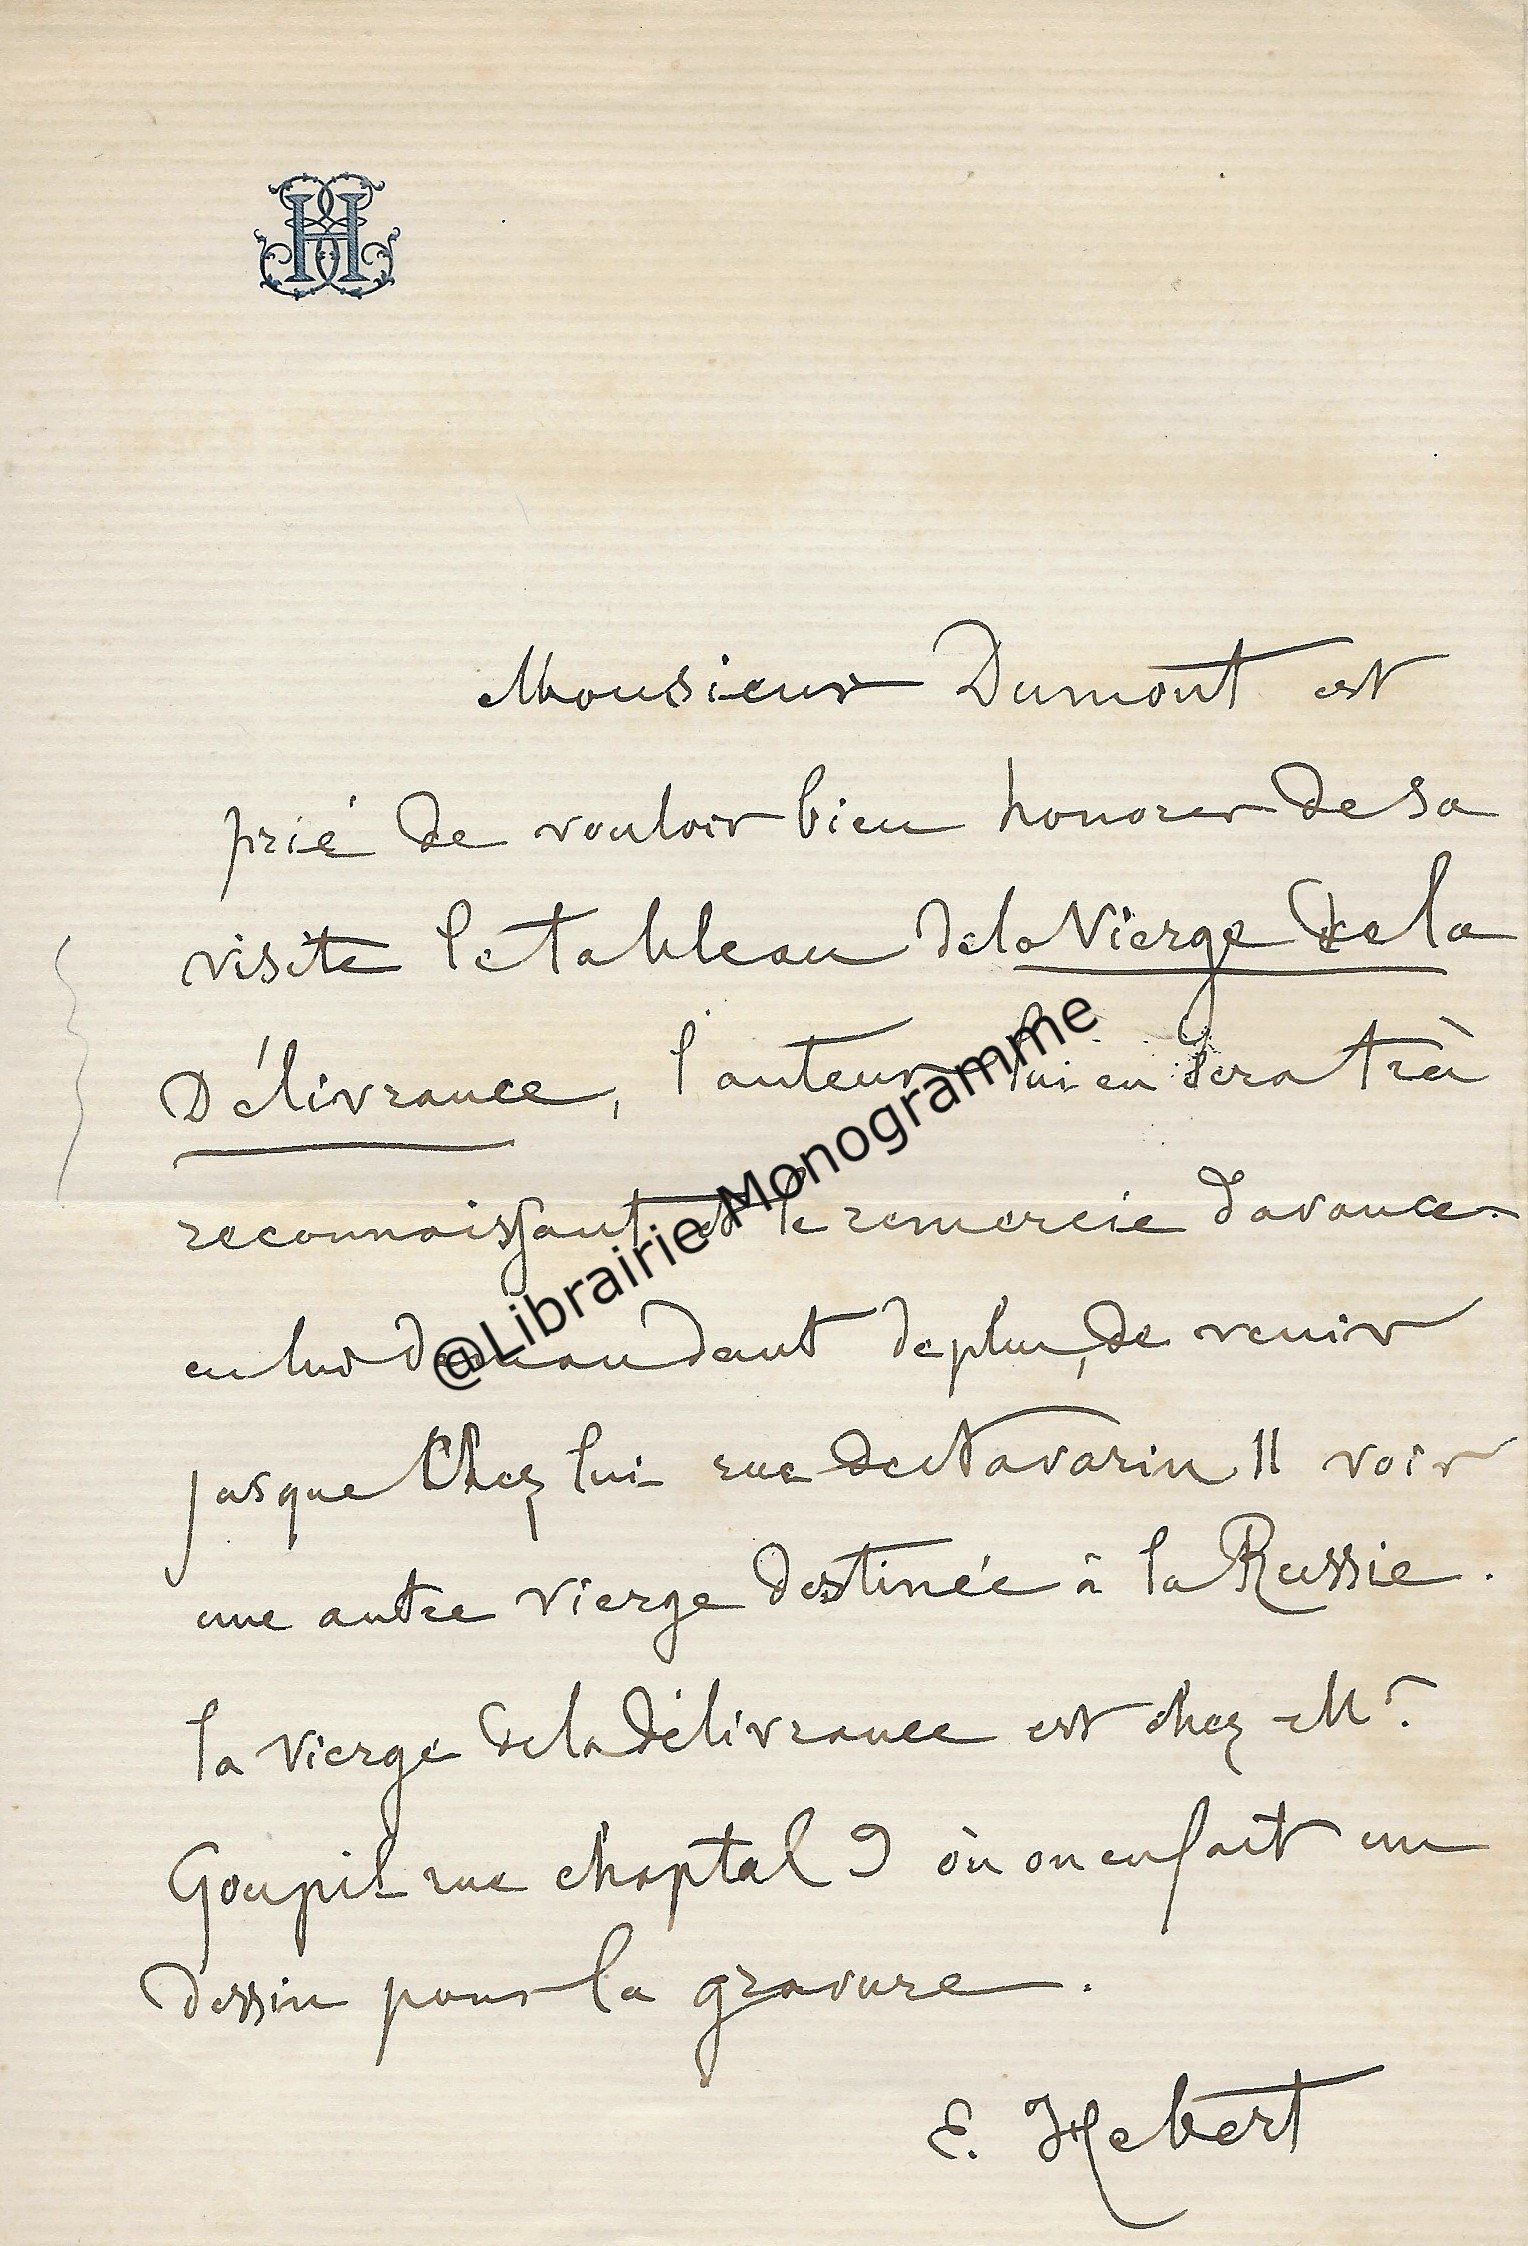 H
Monsieur Dumont est
prié de vouloir bien honorer de sa
visite le tableau de la Vierge de la
Délivrance, l'auteur lui en sera très
reconnaissant et le remercie d'avance
en lui demandant de plus, de venir
jusque chez lui rue de Navarin 11 voir
une autre vierge destinée à la Russie.
la vierge de la Délivrance est chez Mr.
Goupil rue chaptal 9 où on en fait un
dessin pour la gravure.
E. Hebert
@Librairie Monogramme